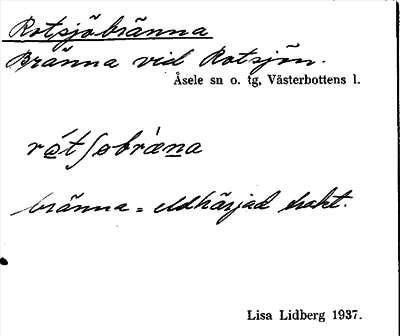 Rotsjöbränna
Bränna vid Rotsjön.
Åsele sn o. tg, Västerbottens l.
rótʃøbrὰna
bränna = eldhärjad trakt.
Lisa Lidberg 1937.